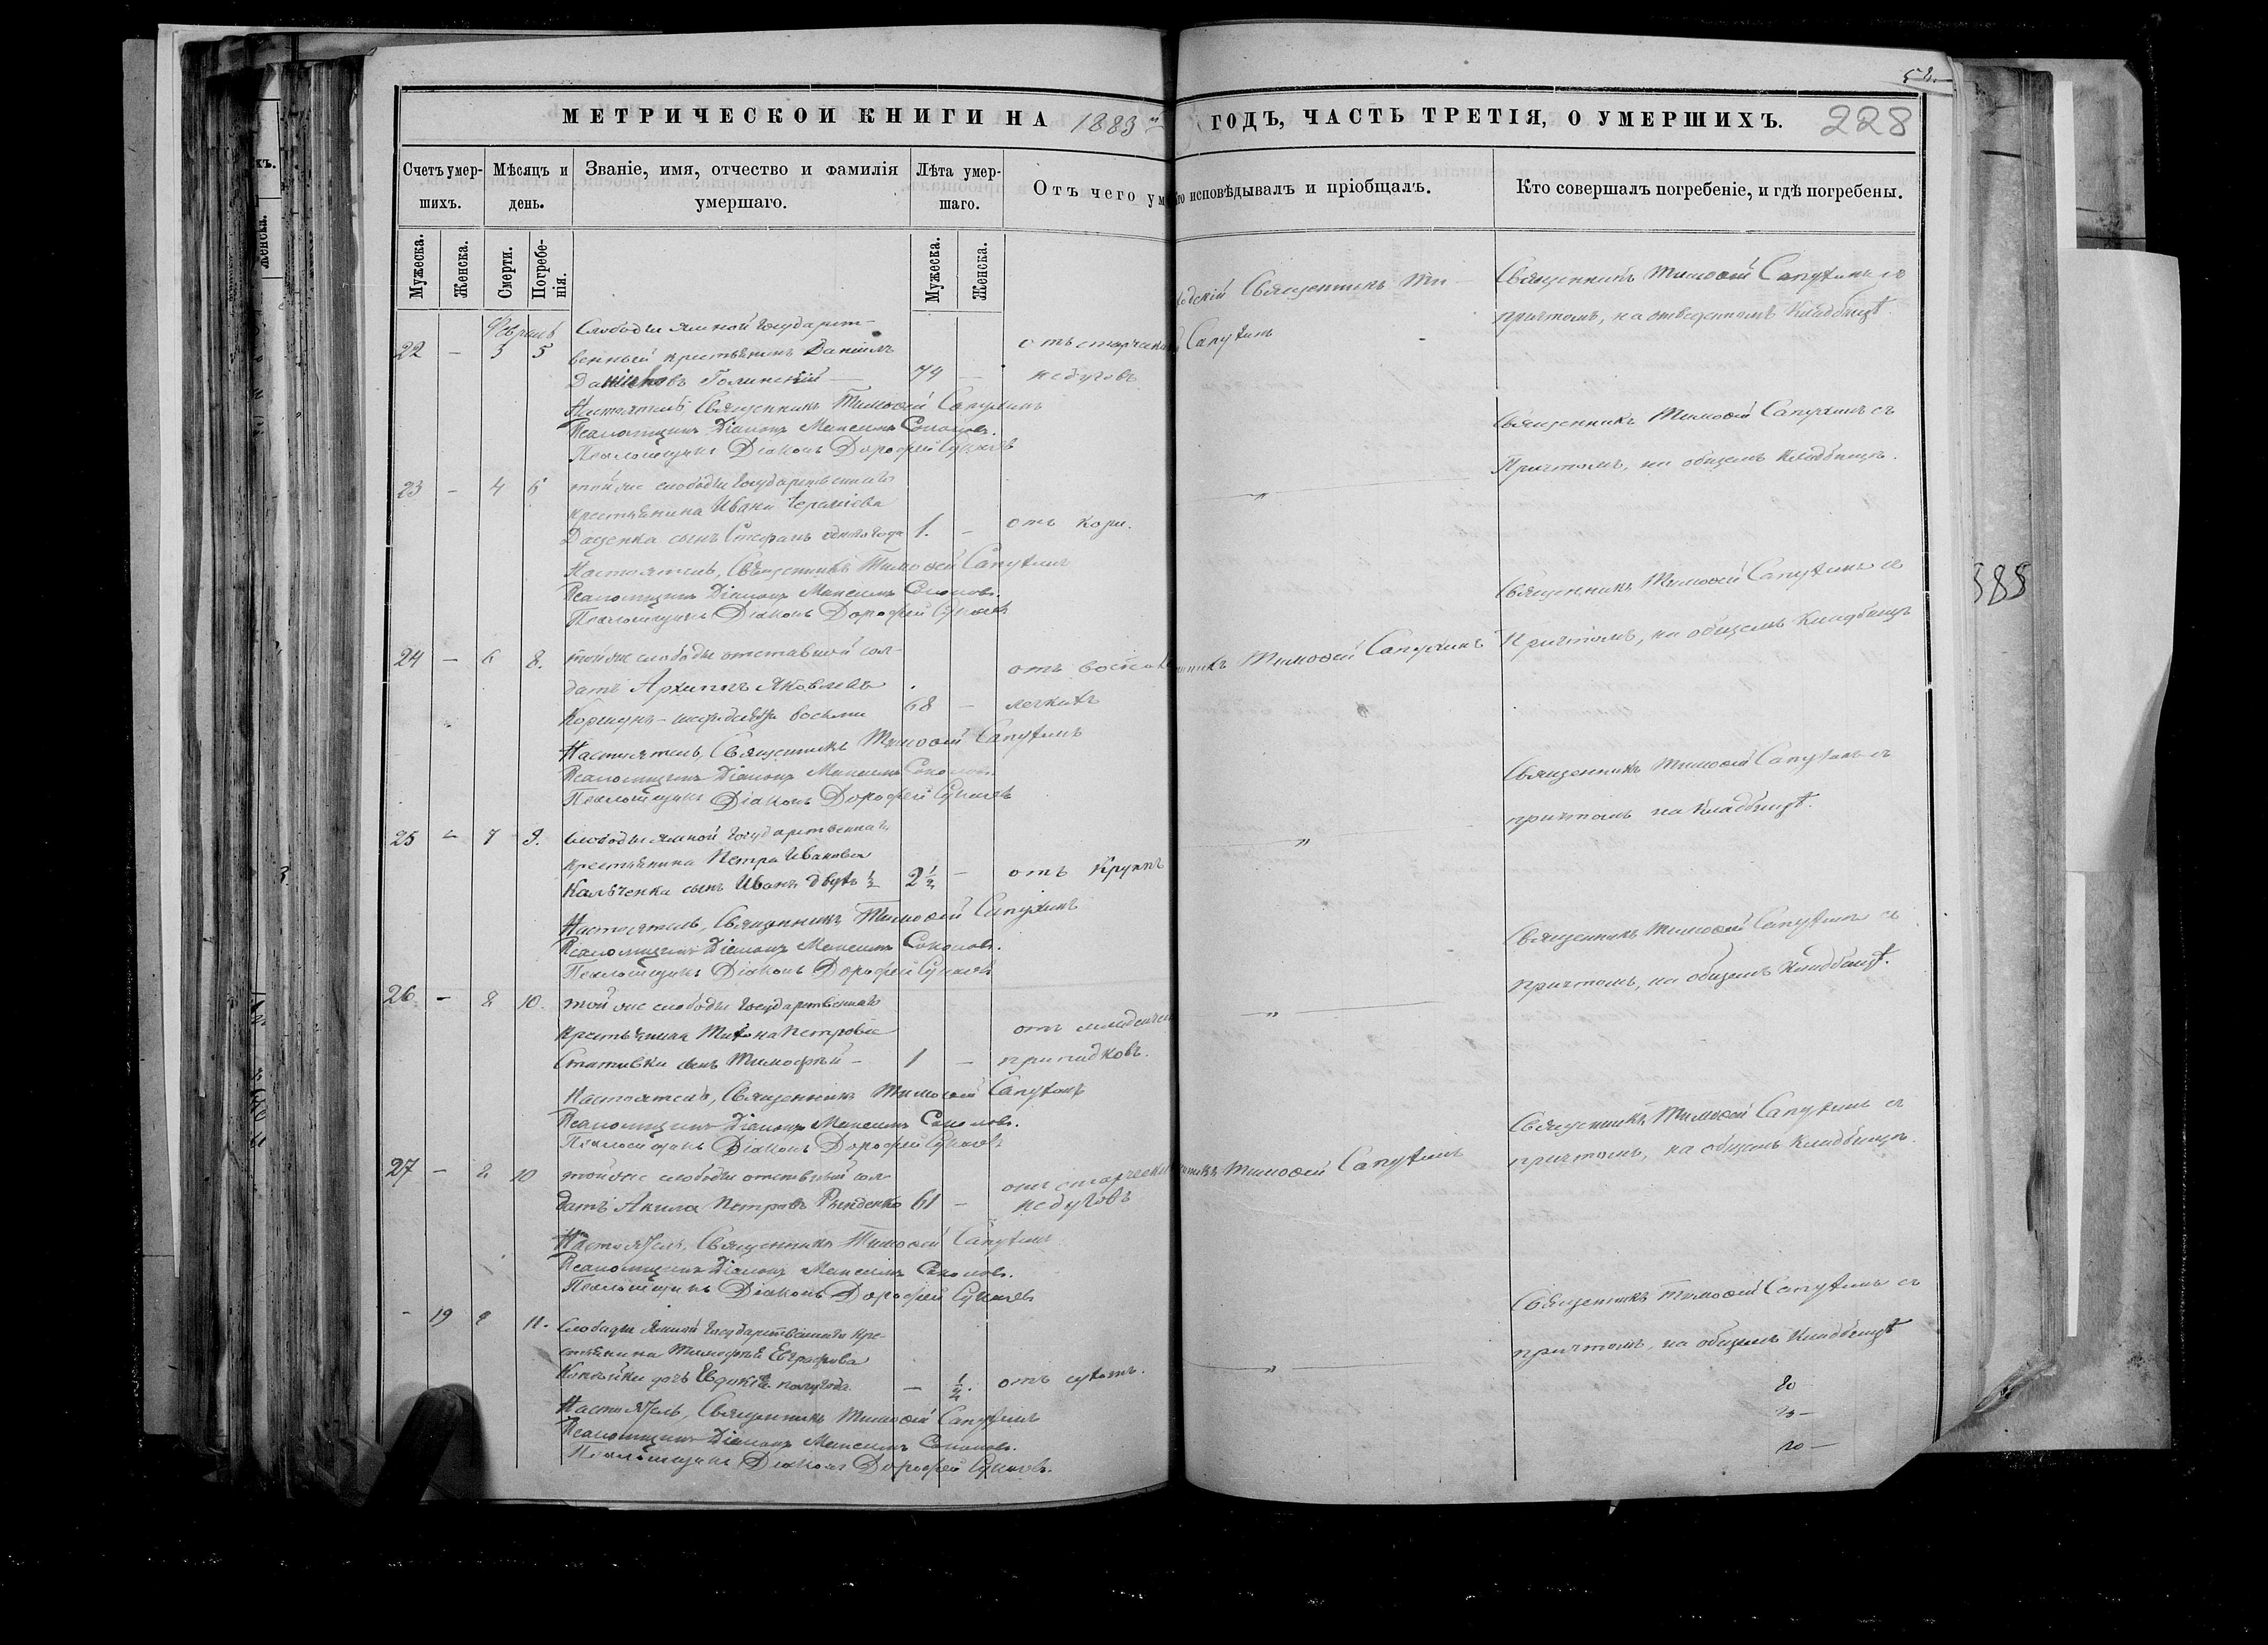 МЕТРИЧЕСКОЙ КНИГИ НА 1883 ГОДЪ, ЧАСТЬ ТРЕТІЯ, О УМЕРШИХЪ.
228
Счетъ умер-
шихъ.
Мѣсяцъ и
день.
Званіе, имя, отчество и фамилія
умершаго.
Лѣта умер-
шаго.
Отъ чего ум
исповѣдывалъ и пріобщалъ.
Кто совершалъ погребеніе, и гдѣ погребены.
Мужеска.
Женска.
Смерти.
Погребе-
нія.
Мужеска.
Женска.
Февраль
22 - 3 5
Слободы Ямной государст-
венный крестьянинъ Даніилъ
Голинскій — 74 —
отъ старчески
недуговъ
Священникъ Ти-
Сапухинъ
Священникъ Тимоѳей Сапухинъ съ
причтомъ, на отведенномъ кладбищѣ.
Настоятель, Священникъ Тимоѳей Сапухинъ
Псаломщикъ Діаконъ Максимъ Соколовъ.
Псаломщикъ Діаконъ Дорофей
23 - 4 6
той же слободы государственнаго
крестьянина Ивана
Даценка сынъ Стефанъ одного года 1. —
отъ кори.
„
Священникъ Тимоѳей Сапухинъ съ
Причтомъ, на общемъ кладбищѣ.
Настоятель, Священникъ Тимоѳей Сапухинъ
Псаломщикъ Діаконъ Максимъ Соколовъ.
Псаломщикъ Діаконъ Дорофей
24 — 6 8.
той же слободы отставной сол-
датъ Архиппъ Яковлевъ
Коршунъ - шестидесяти восьми 68 —
отъ воспал
легкихъ
Тимоѳей Сапухинъ
Священникъ Тимоѳей Сапухинъ съ
Причтомъ, на общемъ кладбищѣ
Настоятель, Священникъ Тимоѳей Сапухинъ
Псаломщикъ Діаконъ Максимъ Соколовъ.
Псаломщикъ Діаконъ Дорофей
25 - 7 9.
Слободы Ямной государственнаго
крестьянина Петра Иванова
сынъ Иванъ двухъ ½ 2½ —
отъ крупъ
„
Священникъ Тимоѳей Сапухинъ съ
причтомъ на кладбищѣ.
Настоятель, Священникъ Тимоѳей Сапухинъ
Псаломщикъ Діаконъ Максимъ Соколовъ.
Псаломщикъ Діаконъ Дорофей
26 - 8 10.
той же слободы государственнаго
крестьянина Тихона Петрова
Стативки сынъ Тимофей - 1 —
отъ младенчес
припадковъ.
„
Священникъ Тимоѳей Сапухинъ съ
причтомъ, на общемъ кладбищѣ.
Настоятель, Священникъ Тимоѳей Сапухинъ
Псаломщикъ Діаконъ Максимъ Соколовъ.
Псаломщикъ Діаконъ Дорофей
27 - 8 10
той же слободы отставный сол-
датъ Акила Петровъ 61 —
отъ старчески
недуговъ
Тимоѳей Сапухинъ
Священникъ Тимоѳей Сапухинъ съ
причтомъ, на общемъ кладбищѣ.
Настоятель, Священникъ Тимоѳей Сапухинъ
Псаломщикъ Діаконъ Максимъ Соколовъ.
Псаломщикъ Діаконъ Дорофей
- 19 9 11.
Слободы Ямной государственнаго кре-
стьянина Тимофея Евграфова
дочь Евдокія полугода — ½.
отъ сухотъ.
„
Священникъ Тимоѳей Сапухинъ съ
причтомъ, на общемъ кладбищѣ
Настоятель, Священникъ Тимоѳей Сапухинъ
Псаломщикъ Діаконъ Максимъ Соколовъ.
Псаломщикъ Діаконъ Дорофей